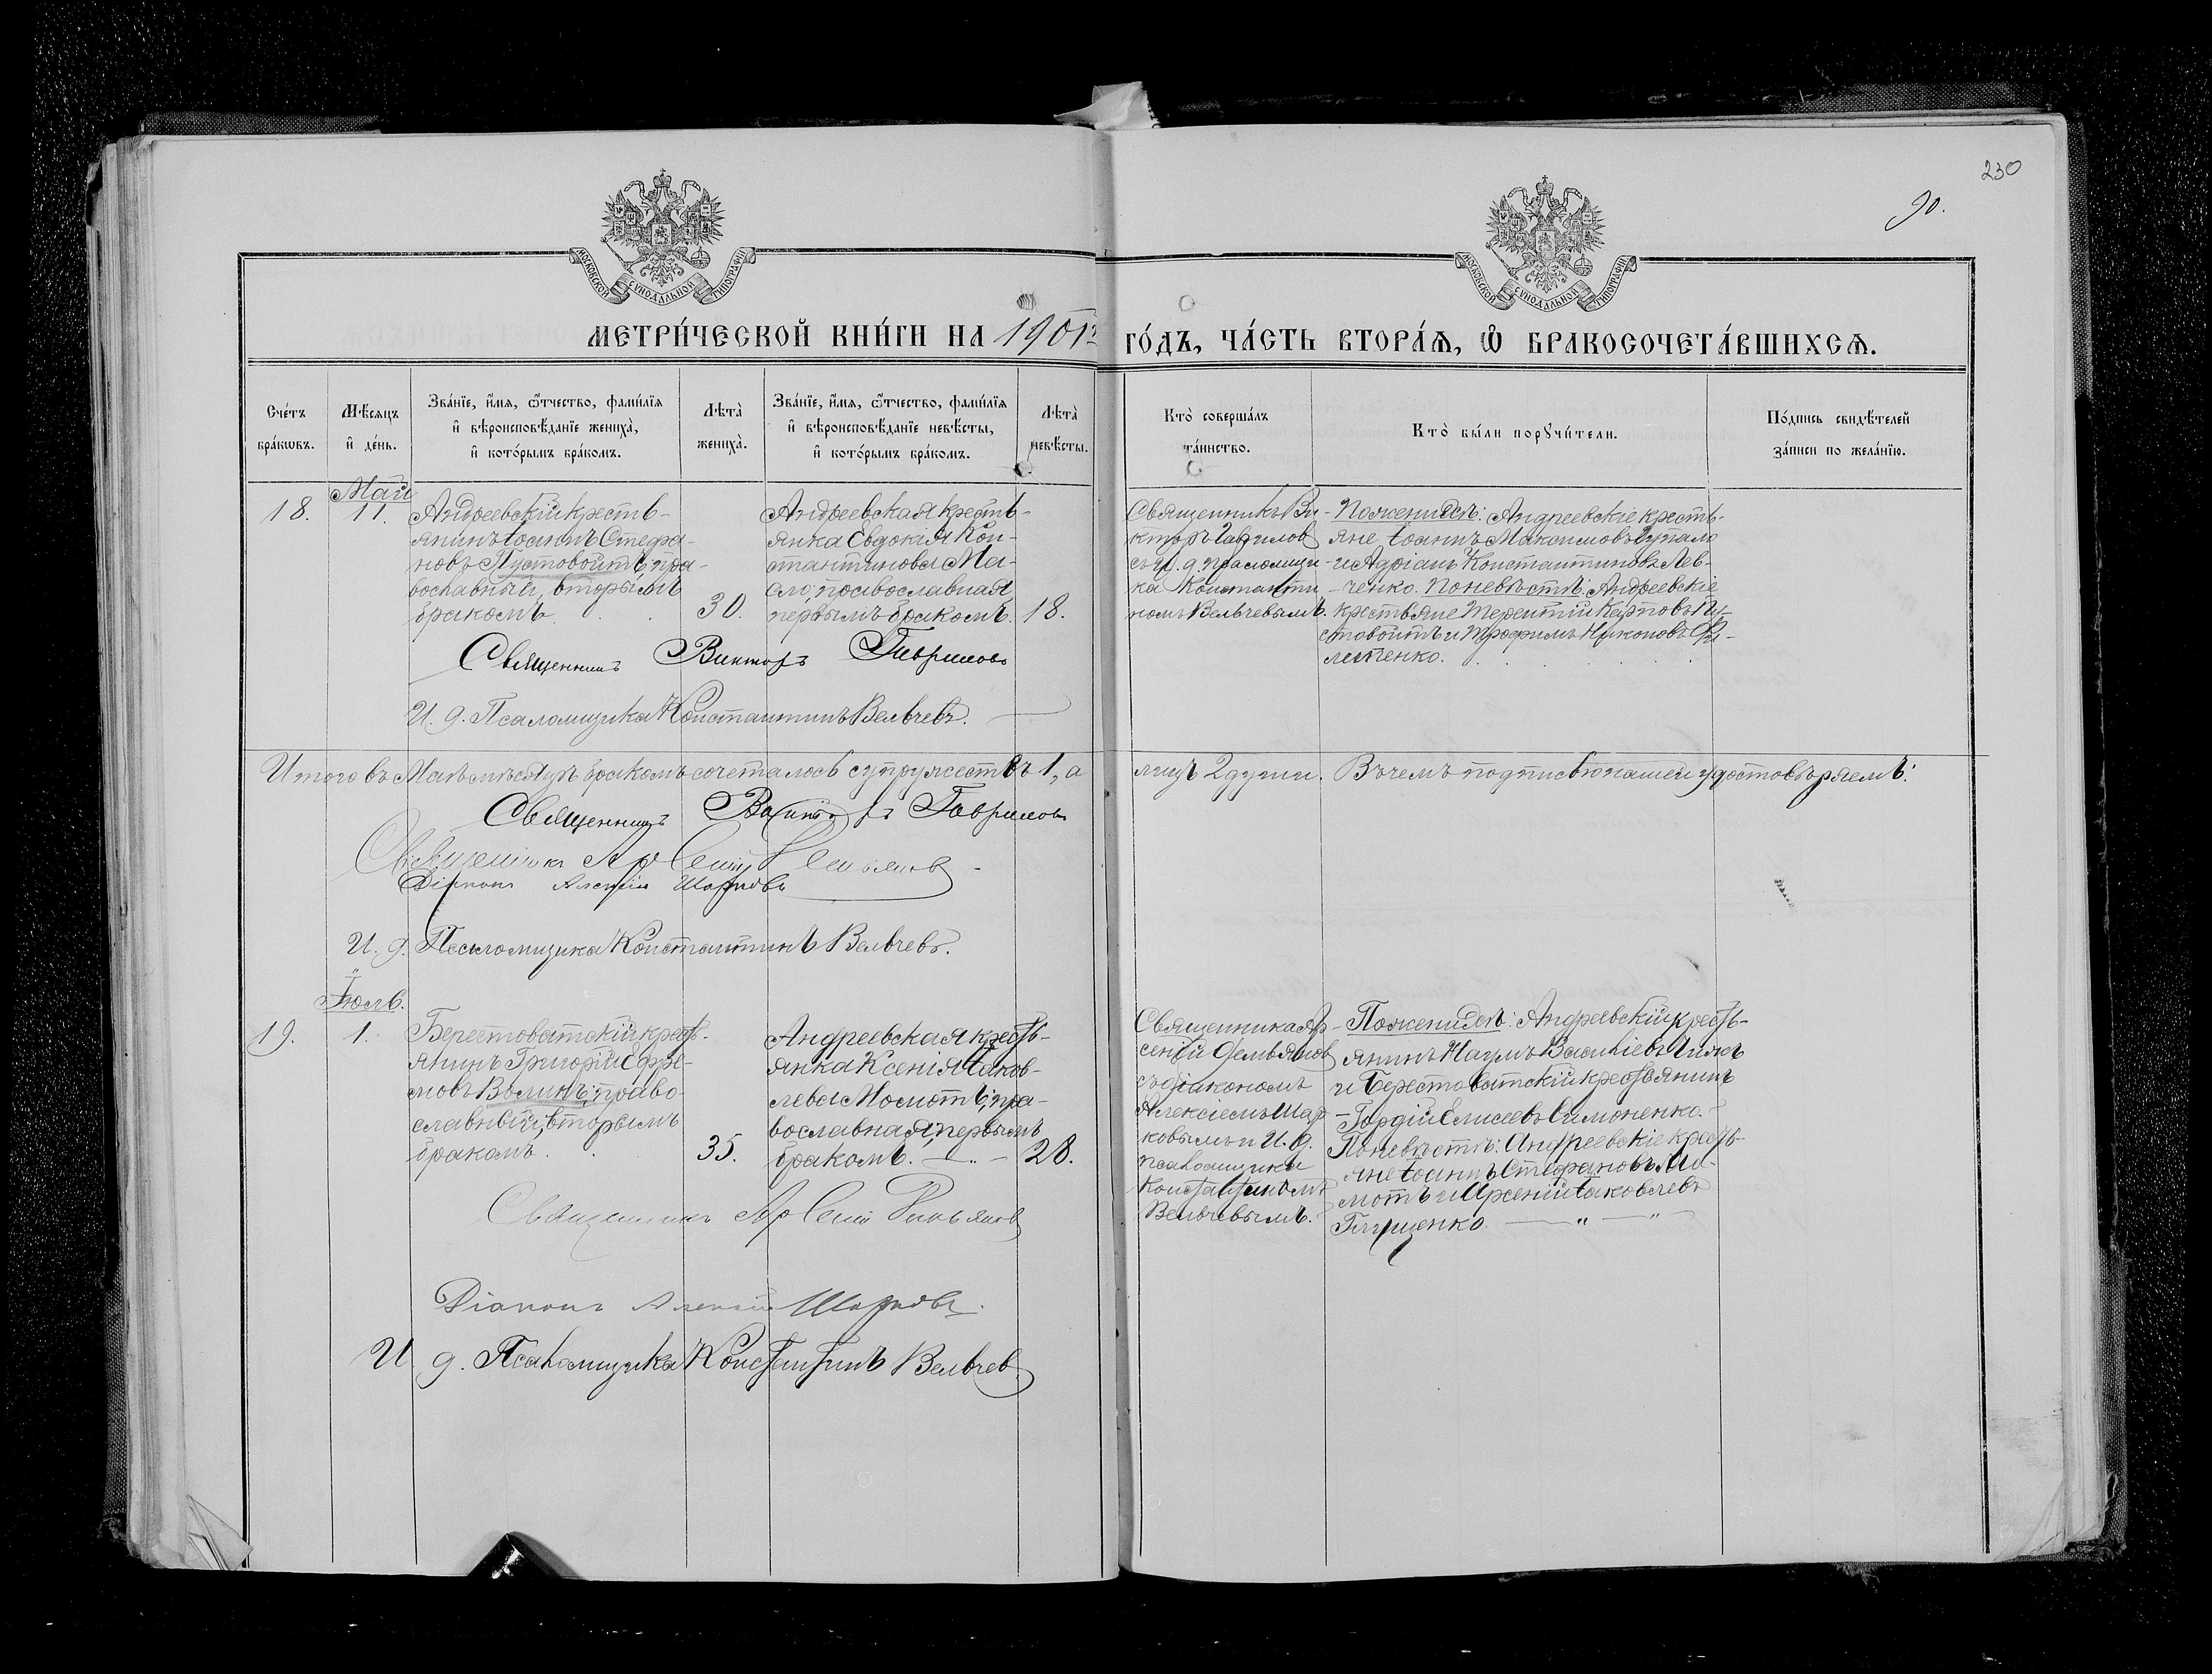 230
90.
МОСКОВСКОЙ СУНОДАЛЬНОЙ ТИПОГРАФІИ
МОСКОВСКОЙ СУНОДАЛЬНОЙ ТИПОГРАФІИ
МЕТРИ́ЧЕСКОЙ КНИ́ГИ НА 1901й ГО́ДЪ, ЧА́СТЬ ВТОРА́Ѧ, Ѽ БРАКОСОЧЕТА́ВШИХСѦ.
Сче́тъ бра́кѡвъ.
Мѣ́сѧцъ и҆ де́нь.
Зва́нїе, и҆́мѧ, ѻ҆́тчество, фами́лїѧ и҆ вѣроисповѣ́данїе жениха̀, и҆ кото́рымъ бра́комъ.
Лѣта̀ жениха̀.
Зва́нїе, и҆́мѧ, ѻ҆́тчество, фами́лїѧ и҆ вѣроисповѣ́данїе невѣ́сты, и҆ кото́рымъ бра́комъ.
Лѣта̀ невѣ́сты.
Кто̀ соверша́лъ та́инство.
Кто̀ бы́ли порꙋчи́тели.
По́дпись свидѣ́телей за́писи по жела́нїю.
Май
18.
11.
Андреевскій кресть-
янинъ Іоаннъ Стефа-
новъ Пустовойтъ, пра-
вославный, вторымъ
бракомъ.
30.
Андреевская кресть-
янка Евдокія Кон-
стантинова Ма-
сло, православная,
первымъ бракомъ.
18.
Священникъ Ви-
кторъ Гавриловъ
съ и. д. псаломщи-
ка Константи-
номъ Вельчевымъ.
По женихѣ: Андреевскіе кресть-
яне Іоаннъ Максимовъ
и Адріанъ Константиновъ Лев-
ченко. По невѣстѣ: Андреевскіе
крестьяне Терентій Карповъ Пу-
стовойтъ и Трофимъ Никоновъ Фи-
липенко.
Священникъ Викторъ Гавриловъ
И. д. Псаломщика Константинъ Вельчевъ.
Итого въ Маѣ мѣсяцѣ бракомъ сочеталось супружествъ 1, а лицъ 2 души. Въ чемъ подписью нашей удостовѣряемъ:
Священникъ Викторъ Гавриловъ
Священникъ Арсеній Демьяновъ
Діаконъ Алексій Шарковъ
И. д. Псаломщика Константинъ Вельчевъ.
Іюль.
19.
1.
Берестоватскій кресть-
янинъ Григорій Ефре-
мовъ Воликъ, право-
славный, вторымъ
бракомъ.
35.
Андреевская кресть-
янка Ксенія Іаков-
лева Момотъ, пра-
вославная, первымъ
бракомъ.
28.
Священника Ар-
сеній Демьянов
съ діакономъ
Алексіемъ Шар-
ковымъ и И. д.
псаломщика
Константиномъ
Вельчевымъ.
По женихѣ: Андреевскій кресть-
янинъ Наумъ Василіевъ Чижъ
и Берестоватскій крестьянинъ
Гордій Елисеевъ Симоненко.
По невѣстѣ: Андреевскіе кресть-
яне Іоаннъ Стефановъ Мо-
мотъ и Арсеній Іаковлевъ
Глущенко.
Священникъ Арсеній Демьяновъ
Діаконъ Алексій Шарковъ.
И. д. Псаломщика Константинъ Вельчев